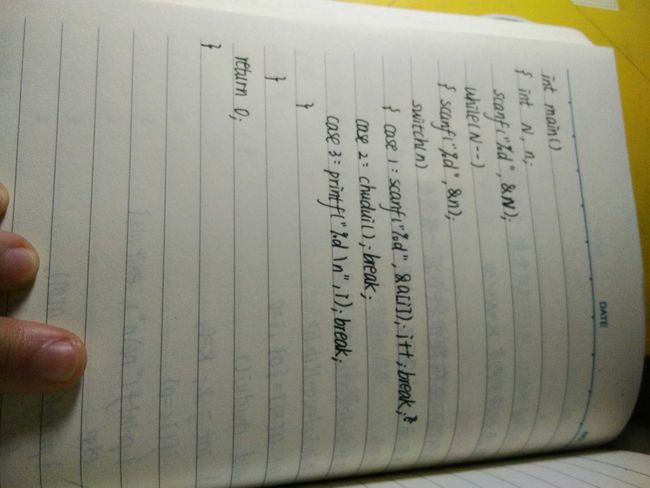 DATE
int main()
{ int N, n;
scanf("%d", &N);
while(N--)
{ scanf("%d", &n);
switch(n)
{ case 1: scanf("%d", &a[i]); i++; break;
case 2: chudui(); break;
case 3: printf("%d\n", i); break;
}
}
return 0;
}